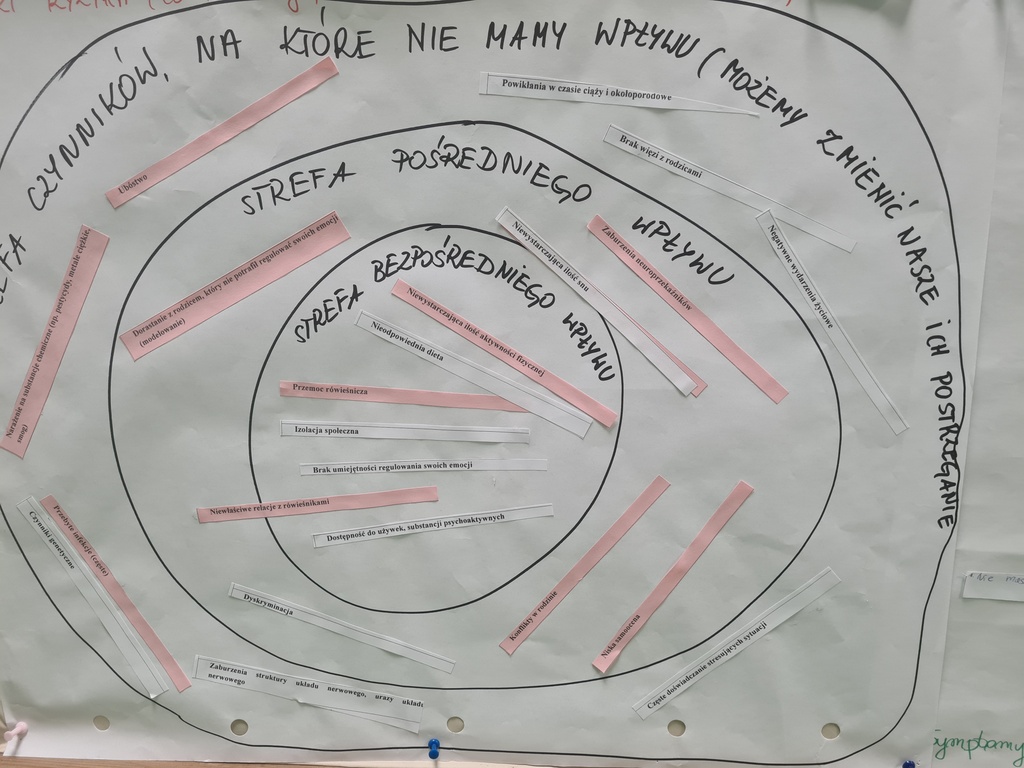 CZYNNIKÓW, NA KTÓRE NIE MAMY WPŁYWU (MOŻEMY ZMIENIĆ NASZE ICH POSTRZEGANIE
Ubóstwo
Powikłania w czasie ciąży i okołoporodowe
Brak więzi z rodzicami
Negatywne wydarzenia życiowe
Narażenie na substancje chemiczne (np. pestycydy, metale ciężkie,
smog)
STREFA POŚREDNIEGO WPŁYWU
Dorastanie z rodzicem, który nie potrafił regulować swoich emocji
(modelowanie)
Niewystarczająca ilość snu
Zaburzenia neuroprzekaźników
STREFA BEZPOŚREDNIEGO WPŁYWU
Niewystarczająca ilość aktywności fizycznej
Nieodpowiednia dieta
Przemoc rówieśnicza
Izolacja społeczna
Brak umiejętności regulowania swoich emocji
Niewłaściwe relacje z rówieśnikami
Dostępność do używek, substancji psychoaktywnych
Przebyte infekcje (częste)
Czynniki genetyczne
Dyskryminacja
Konflikty w rodzinie
Niska samoocena
Częste doświadczanie stresujących sytuacji
Zaburzenia struktury układu nerwowego, urazy układu
nerwowego
Nie
symptomy